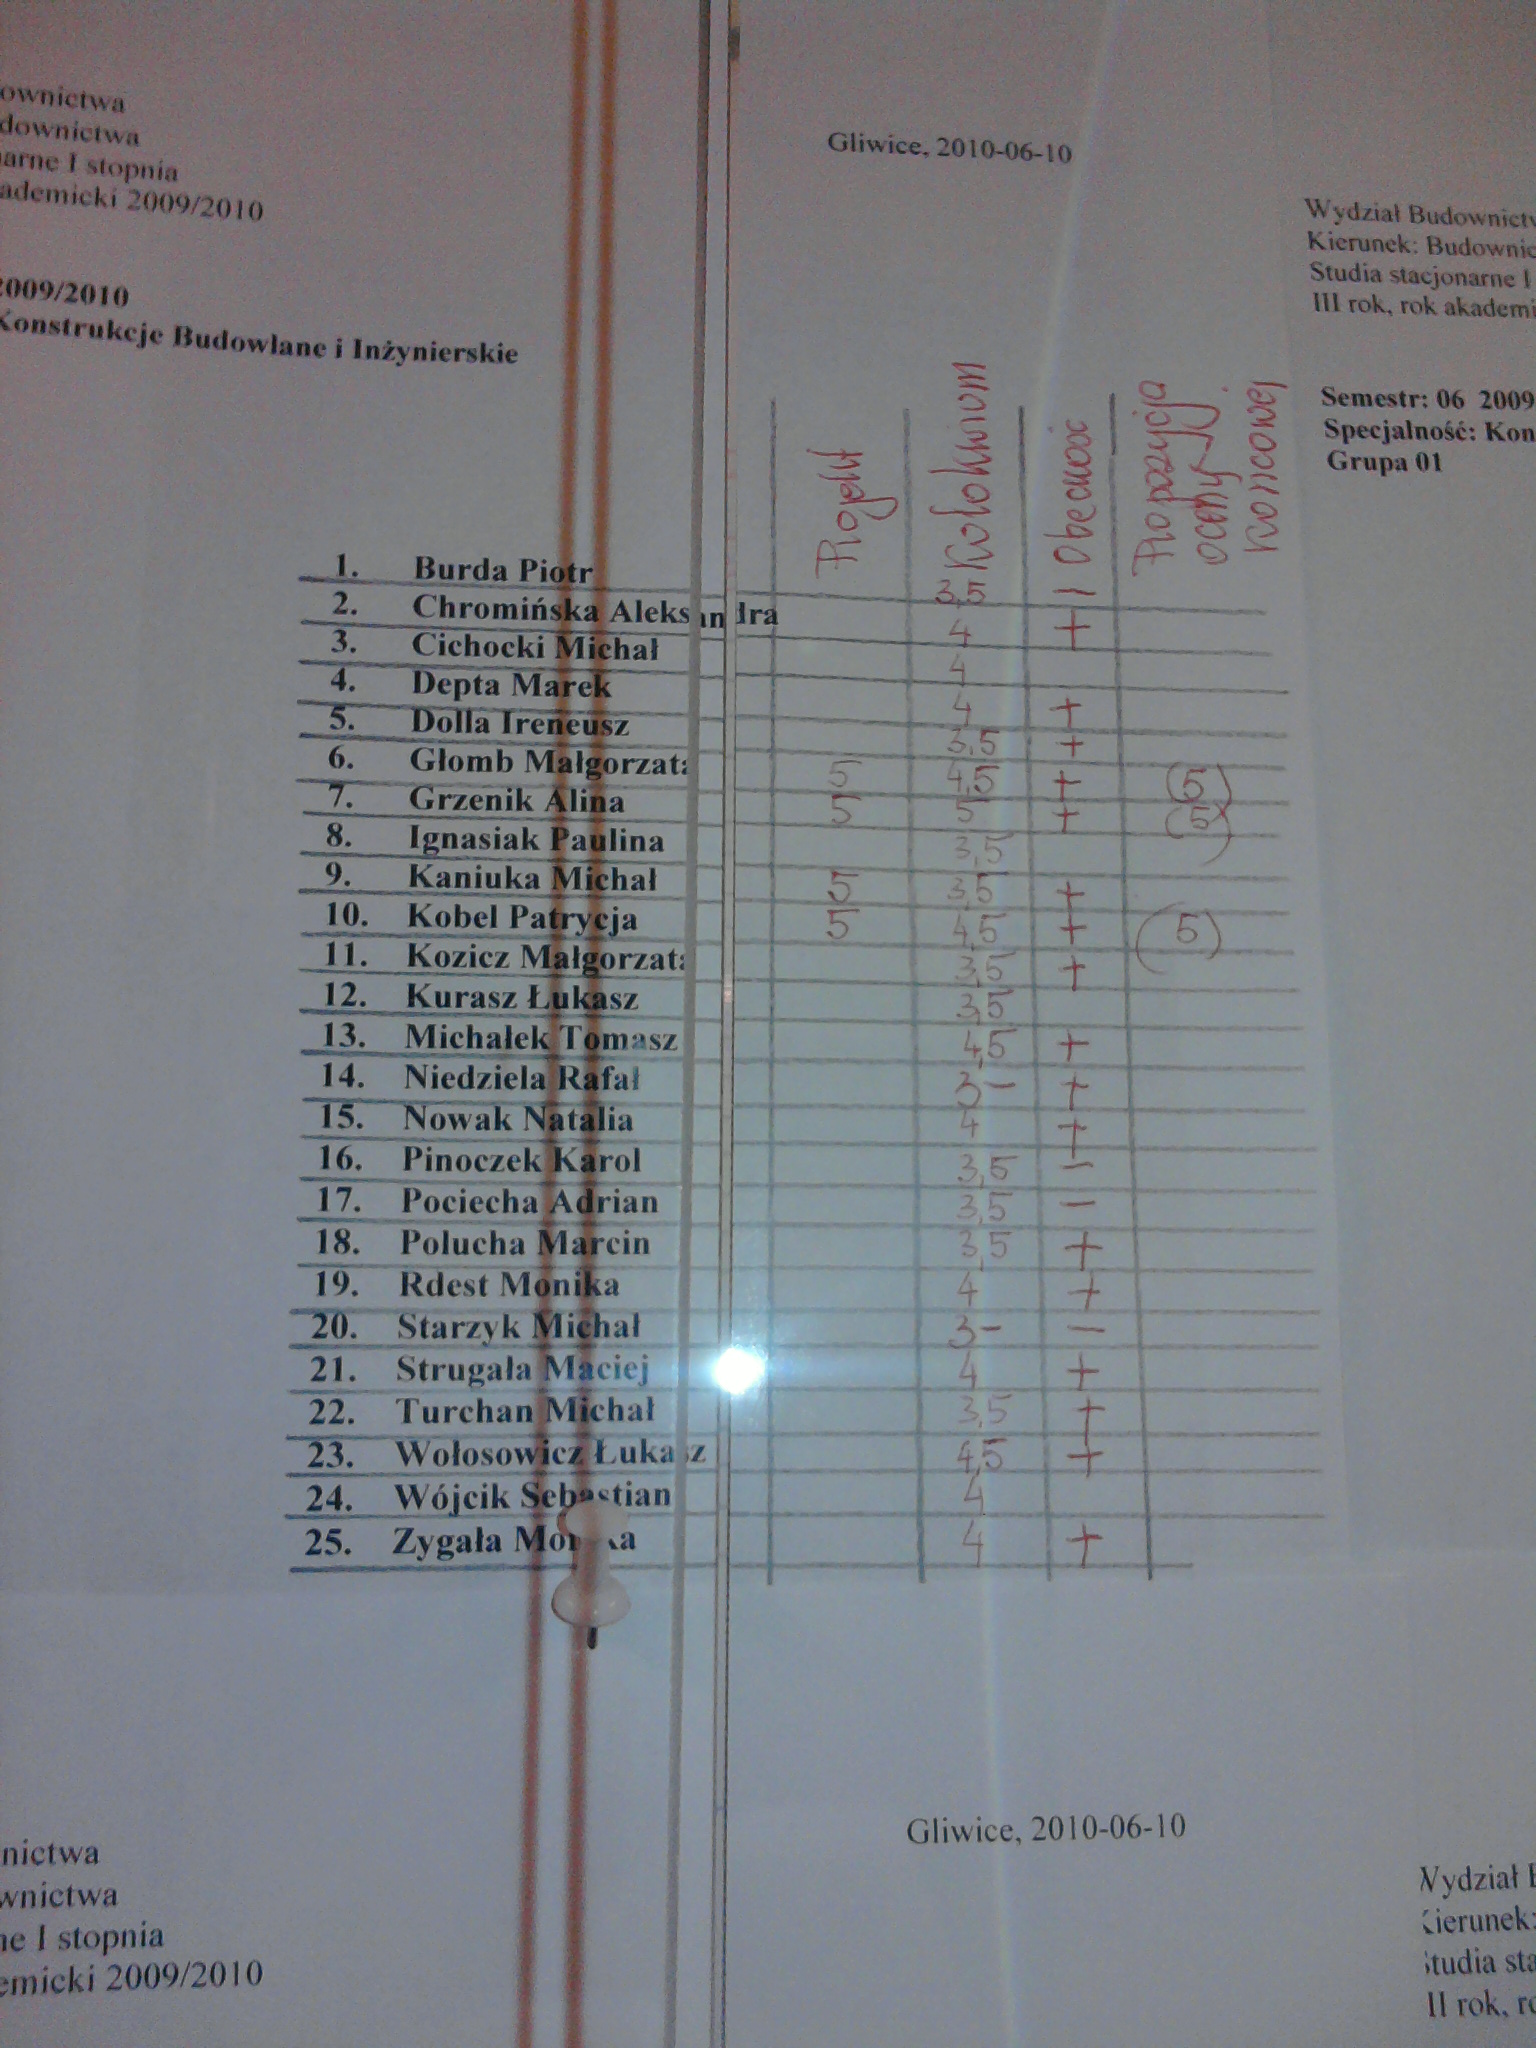 ownictwa
downictwa
arne I stopnia
ademicki 2009/2010
Gliwice, 2010-06-10
Wydział Budownictw
Kierunek: Budownic
Studia stacjonarne I
III rok, rok akademi
2009/2010
Konstrukcje Budowlane i Inżynierskie
Semestr: 06 2009
Specjalność: Kon
Grupa 01
Projekt Kolokwium Obecność Propozycja oceny końcowej
1. Burda Piotr 3,5 −
2. Chromińska Aleksandra 4 +
3. Cichocki Michał 4
4. Depta Marek 4 +
5. Dolla Ireneusz 3,5 +
6. Głomb Małgorzata 5 4,5 + (5)
7. Grzenik Alina 5 5 + (5)
8. Ignasiak Paulina 3,5
9. Kaniuka Michał 5 3,5 +
10. Kobel Patrycja 5 4,5 + (5)
11. Kozicz Małgorzata 3,5 +
12. Kurasz Łukasz 3,5
13. Michałek Tomasz 4,5 +
14. Niedziela Rafał 3− +
15. Nowak Natalia 4 +
16. Pinoczek Karol 3,5 −
17. Pociecha Adrian 3,5 −
18. Polucha Marcin 3,5 +
19. Rdest Monika 4 +
20. Starzyk Michał 3− −
21. Strugała Maciej 4 +
22. Turchan Michał 3,5 +
23. Wołosowicz Łukasz 4,5 +
24. Wójcik Sebastian 4
25. Zygała Monika 4 +
Gliwice, 2010-06-10
nictwa
wnictwa
ne I stopnia
emicki 2009/2010
Wydział B
Kierunek:
Studia sta
II rok, ro